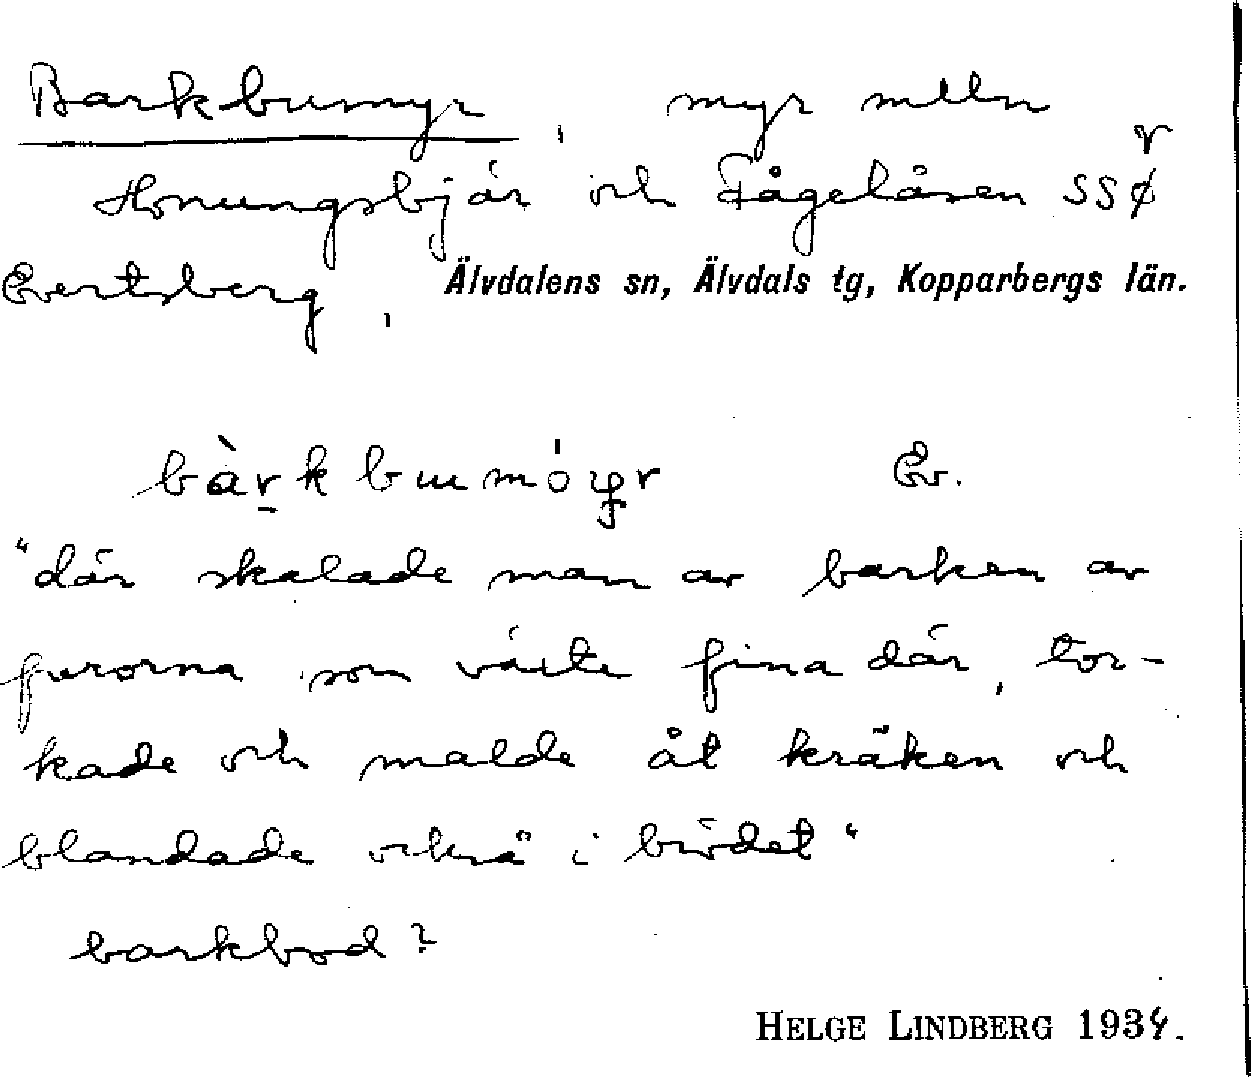 Barkbumyr, myr mlln
Honungsbjär och Fågelåsen SSØ v
Evertsberg, Älvdalens sn, Älvdals tg, Kopparbergs län.
Ev.
"där skalade man av barken av
furorna som växte fina där, tor-
kade och malde åt kräken och
blandade också i brödet"
barkbod?
HELGE LINDBERG 1934.